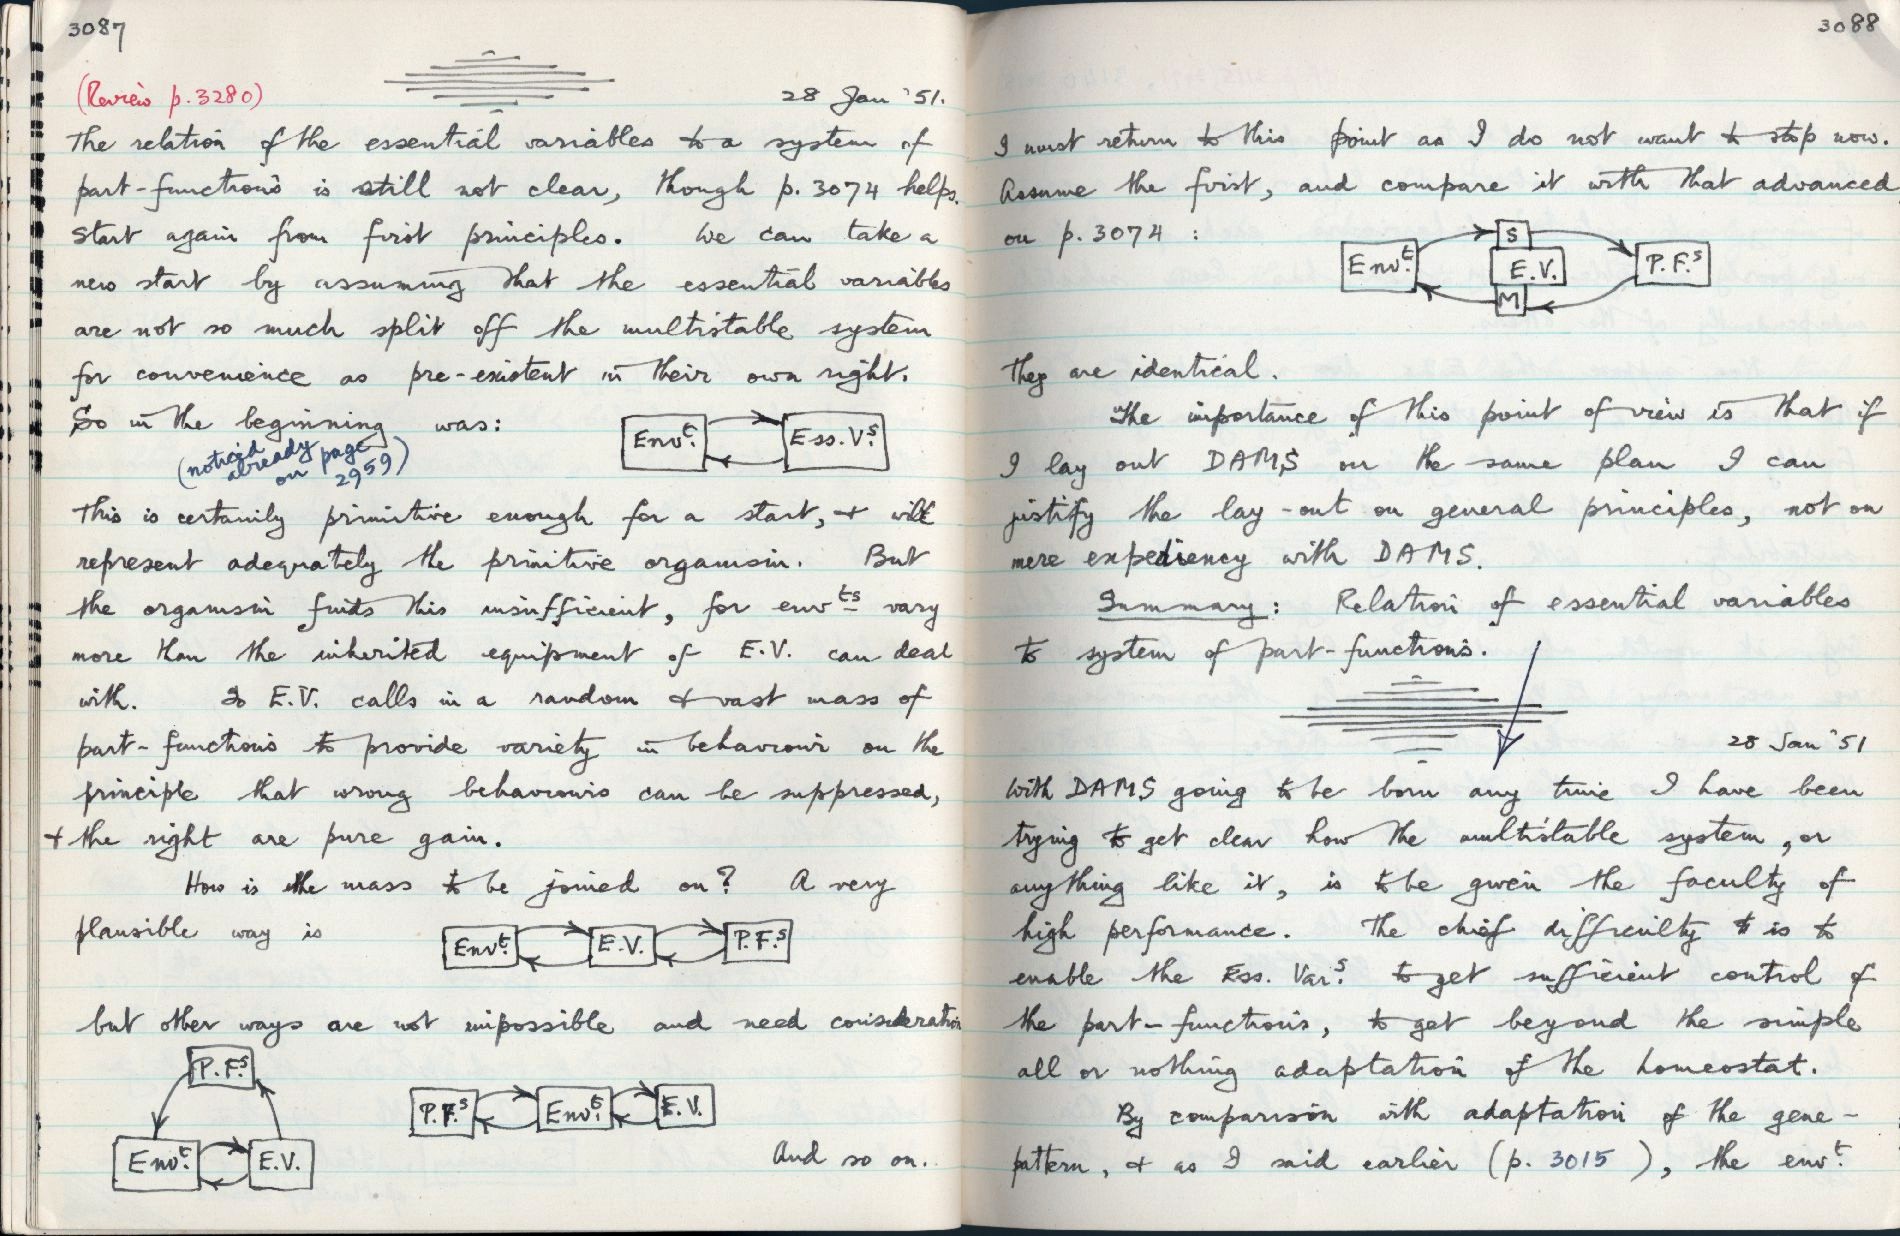 3087
(Review p.3280)
28 Jan '51.
The relation of the essential variables to a system of
part-functions is still not clear, though p.3074 helps.
Start again from first principles. We can take a
new start by assuming that the essential variables
are not so much split off the multistable system
for convenience as pre-existent in their own right.
So in the beginning was:
Envt. Ess.Vs.
(noticed already on page 2959)
This is certainly primitive enough for a start, & will
represent adequately the primitive organism. But
the organism finds this insufficient, for envts vary
more than the inherited equipment of E.V. can deal
with. So E.V. calls in a random & vast mass of
part-functions to provide variety in behaviour on the
principle that wrong behaviours can be suppressed,
& the right are pure gain.
How is the mass to be joined on? A very
plausible way is
Envt. E.V. P.F.s
but other ways are not impossible and need consideration
P.F.s
Envt. E.V.
P.F.s Envt. E.V.
And so on.
3088
I must return to this point as I do not want to stop now.
Assume the first, and compare it with that advanced
on p.3074 :
Envt. S E.V. M P.F.s
They are identical.
The importance of this point of view is that if
I lay out DAMS on the same plan I can
justify the lay-out on general principles, not on
mere expediency with DAMS.
Summary: Relation of essential variables
to system of part-functions.
28 Jan '51
With DAMS going to be born any time I have been
trying to get clear how the multistable system, or
anything like it, is to be given the faculty of
high performance. The chief difficulty is to
enable the Ess. Vars. to get sufficient control of
the part-functions, to get beyond the simple
all or nothing adaptation of the homeostat.
By comparison with adaptation of the gene-
pattern, & as I said earlier (p. 3015), the envt.